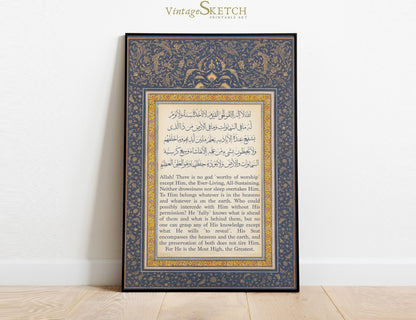 VintageSKETCH
PRINTABLE ART
الله لا إله إلا هو الحي القيوم لا تأخذه سنة ولا نوم
له ما في السموات وما في الأرض من ذا الذي
يشفع عنده إلا بإذنه يعلم ما بين أيديهم وما خلفهم
ولا يحيطون بشيء من علمه إلا بما شاء وسع كرسيه
السموات والأرض ولا يئوده حفظهما وهو العلي العظيم
Allah! There is no god 'worthy of worship'
except Him, the Ever-Living, All-Sustaining.
Neither drowsiness nor sleep overtakes Him.
To Him belongs whatever is in the heavens
and whatever is on the earth. Who could
possibly intercede with Him without His
permission? He 'fully' knows what is ahead
of them and what is behind them, but no
one can grasp any of His knowledge except
what He wills 'to reveal'. His Seat
encompasses the heavens and the earth, and
the preservation of both does not tire Him.
For He is the Most High, the Greatest.